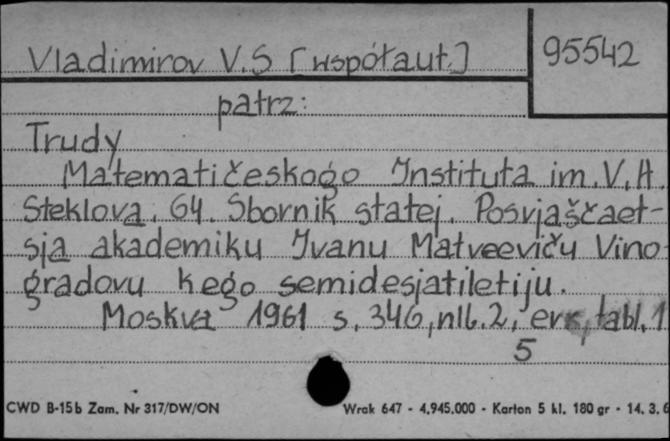 Vladimirov V.S [współaut.] 95542
patrz:
Trudy
Matematičeskogo Instituta im. V. A.
Steklova. 64. Sbornik statej. Posvjaščaet-
sja akademiku Ivanu Matveeviču Vino-
gradovu k ego semidesjatiletiju.
Moskva 1961 s. 346, nlb. 2, tabl. 1
5
CWD B-15b Zam. Nr 317/DW/ON Wrak 647 - 4.945.000 - Karton 5 kl. 180 gr - 14. 3.